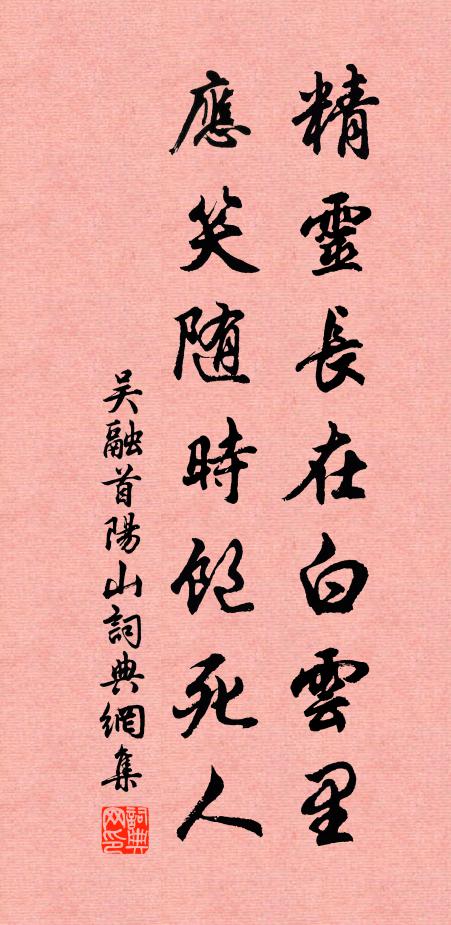 精靈長在白雲里
應笑随時飽死人
吴融首陽山詞典網集
詞典网印